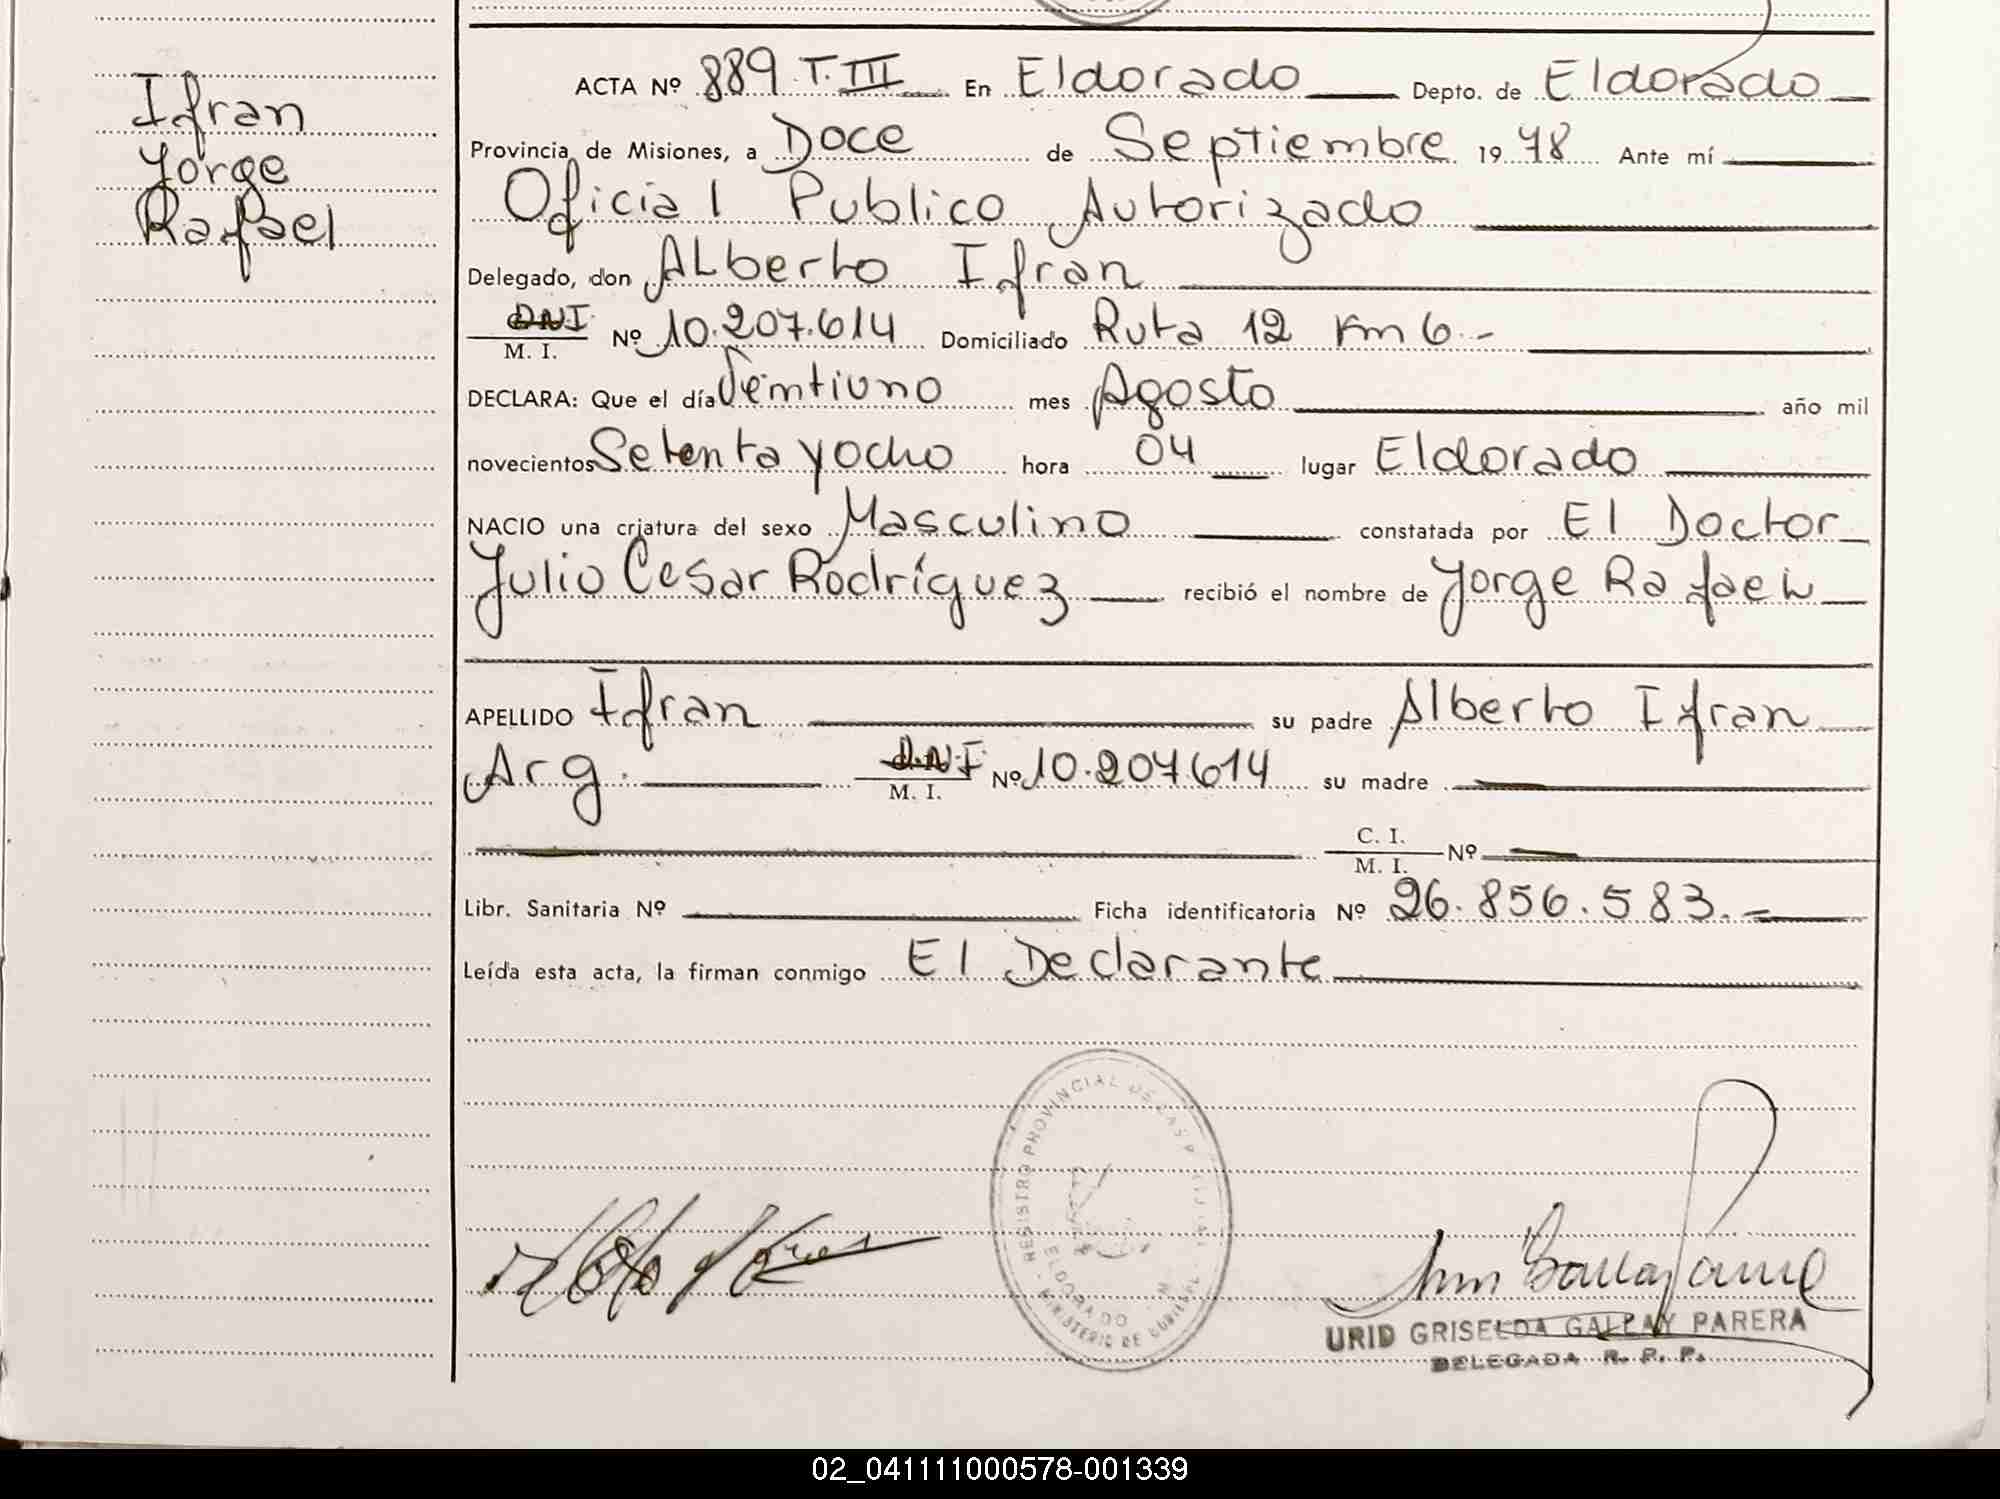 Ifran
Jorge
Rafael
ACTA Nº 889 T. III En Eldorado Depto. de Eldorado
Provincia de Misiones, a Doce de Septiembre 1978 Ante mí
Oficial Publico Autorizado
Delegado, don Alberto Ifran
DNI
M. I. Nº 10.207.614 Domiciliado Ruta 12 Km 6.-
DECLARA: Que el día Veintiuno mes Agosto año mil
novecientos Setenta y ocho hora 04 lugar Eldorado
NACIO una criatura del sexo Masculino constatada por El Doctor
Julio Cesar Rodríguez recibió el nombre de Jorge Rafael
APELLIDO Ifran su padre Alberto Ifran
Arg. D.N.I M. I. Nº 10.207.614 su madre
C. I.
M. I. Nº
Libr. Sanitaria Nº Ficha identificatoria Nº 26.856.583.-
Leída esta acta, la firman conmigo El Declarante
REGISTRO PROVINCIAL DE LAS
ELDORADO
MINISTERIO DE GOBIERNO
URID GRISELDA GALLAY PARERA
DELEGADA R. P. P.
02_041111000578-001339